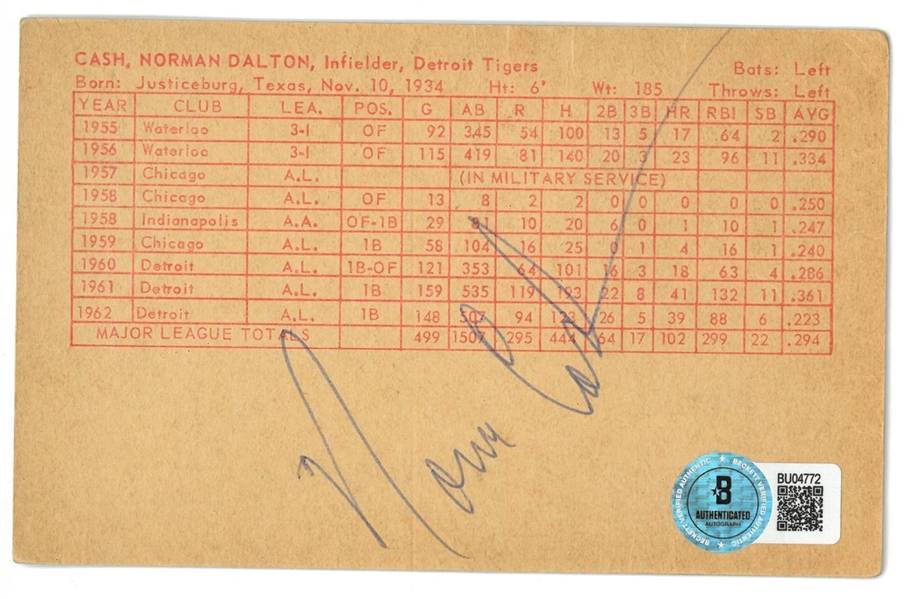 CASH, NORMAN DALTON, Infielder, Detroit Tigers Bats: Left
Born: Justiceburg, Texas, Nov. 10, 1934 Ht: 6' Wt: 185 Throws: Left
YEAR CLUB LEA. POS. G AB R H 2B 3B HR RBI SB AVG
1955 Waterloo 3-I OF 92 345 54 100 13 5 17 64 2 .290
1956 Waterloo 3-I OF 115 419 81 140 20 3 23 96 11 .334
1957 Chicago A.L. (IN MILITARY SERVICE)
1958 Chicago A.L. OF 13 8 2 2 0 0 0 0 0 .250
1958 Indianapolis A.A. OF-1B 29 10 20 6 0 1 10 1 .247
1959 Chicago A.L. 1B 58 104 16 25 0 1 4 16 1 .240
1960 Detroit A.L. 1B-OF 121 353 64 101 16 3 18 63 4 .286
1961 Detroit A.L. 1B 159 535 119 193 22 8 41 132 11 .361
1962 Detroit A.L. 1B 148 507 94 26 5 39 88 6 .223
MAJOR LEAGUE TOTALS 499 1507 295 444 64 17 102 299 22 .294
Norm Cash
BECKETT VERIFIED AUTHENTIC
B
AUTHENTICATED
AUTOGRAPH
BECKETT VERIFIED AUTHENTIC
BU04772